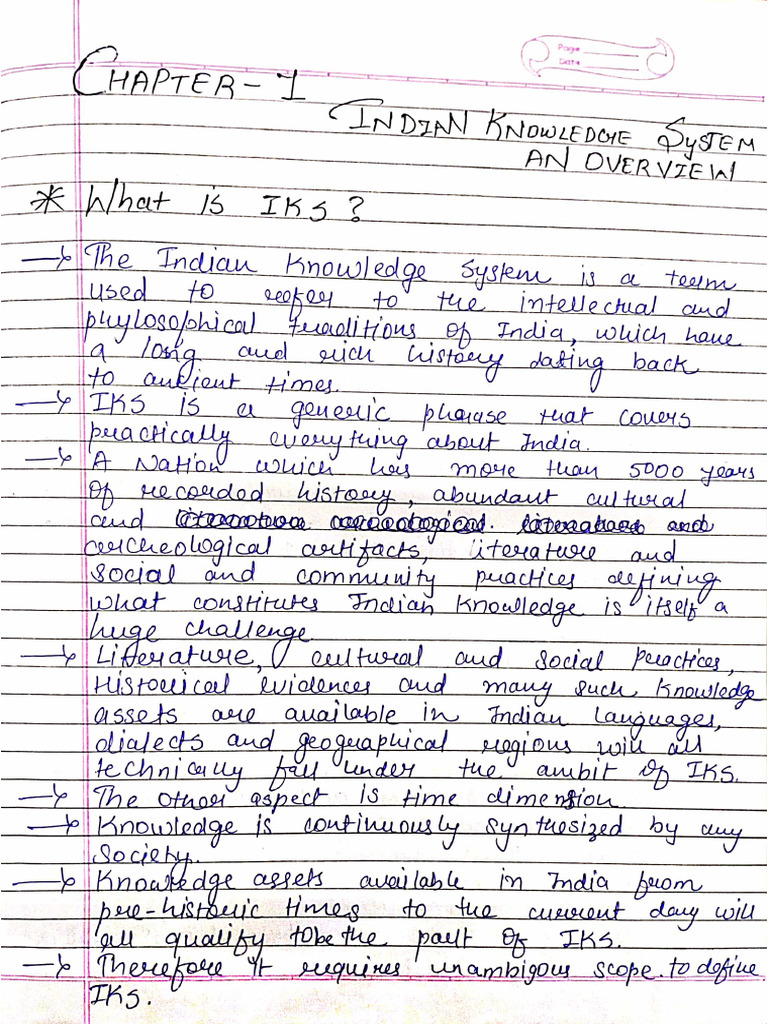 Page
Date
CHAPTER - 1
INDIAN KNOWLEDGE SYSTEM
AN OVERVIEW
* What is IKS?
→ The Indian Knowledge System is a term
used to refer to the intellectual and
phylosophical traditions of India, which have
a long and rich history dating back
to ancient times.
→ IKS is a generic phrase that covers
practically everything about India.
→ A Nation which has more than 5000 years
of recorded history, abundant cultural
and
archeological artifacts, literature and
social and community practices defining
what constitutes Indian Knowledge is itself a
huge challenge.
→ Literature, cultural and social Practices,
Historical evidences and many such Knowledge
assets are available in Indian Languages,
dialects and geographical regions will all
technically fall under the ambit of IKS.
→ The other aspect is time dimension.
→ Knowledge is continuously synthesized by any
society.
→ Knowledge assets available in India from
pre-historic times to the current day will
all qualify to be the part of IKS.
→ Therefore it requires unambigous scope to define
IKS.